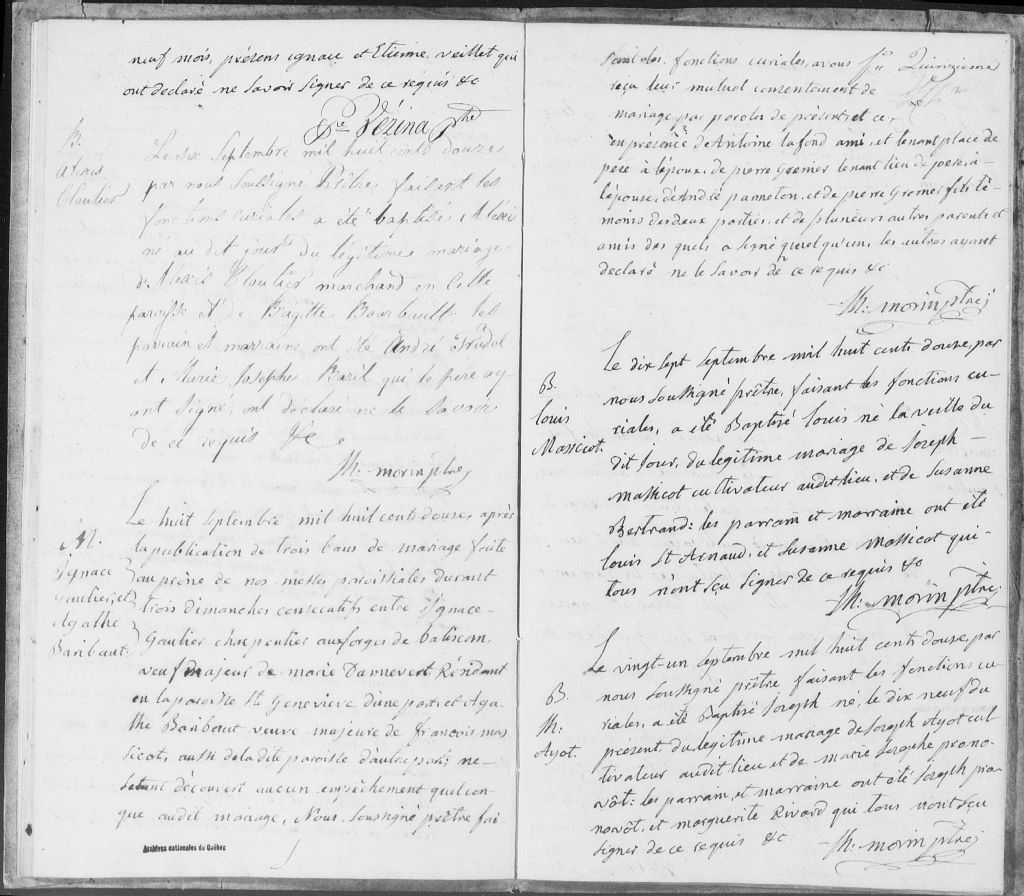 neuf mois, présens ignace et Etienne veillet qui
ont declaré ne savoir signer de ce requis &c
Frs Vézina ptre
B.
Alexis
Cloutier
Le six Septembre mil huit cents douze
par nous soussigné Prêtre faisant les
fonctions curiales a été baptisé Alexis
né au dit jour du légitime mariage
d'Alexis Cloutier marchand en cette
paroisse et de Brigitte Baribeault les
parrain et marraine ont été André Trudel
et Marie Josephe Baril qui, le pere ay-
ant signé, ont déclaré ne le savoir
de ce requis &c
Th: morin ptre
M.
Ignace
Gautier, et
Agathe
Baribaut
Le huit septembre mil huit cents douse, après
la publication de trois bans de mariage faite
au prône de nos messes paroissiales durant
trois dimanches consecutifs entre Ignace-
Gautier charpentier aux forges de batiscan,
veuf majeur de marie Dannevert Résidant
en la paroisse Ste Genevieve d'une part et Aga-
the Baribaut veuve majeure de francois mas
sicot, aussi de la dite paroisse d'autre part; ne-
setant découvert aucun empêchement quelcon-
que au dit mariage, Nous soussigné prêtre fai-
Archives nationales du Québec
sant les fonctions curiales, avons
reçu leur mutuel consentement de
mariage par paroles de présent et ce,
en présence de Antoine lafond ami, et tenant place de
pere à l'époux, de pierre Grenier tenant lieu de pere, à-
l'épouse, d'André panneton, et de pierre Grenier fils té-
moins des deux parties, et de plusieurs autres parents et
amis des quels a signé quelqu'un, les autres ayant
declaré ne le savoir de ce requis &c
Th: morin ptre
Quinzieme
B.
louis
Massicot
Le dix sept septembre mil huit cents douse, par
nous soussigné prêtre, faisant les fonctions cu-
riales, a été Baptisé louis né la veille du
dit Jour, du legitime mariage de Joseph-
massicot cultivateur audit lieu, et de Susanne
Bertrand: les parrain et marraine ont été
louis St Arnaud, et Susanne Massicot qui-
tous n'ont sçu signer de ce requis &c
Th: morin ptre
B.
Th:
Ayot.
Le vingt-un septembre mil huit cents douse, par
nous soussigné prêtre faisant les fonctions cu
riales, a été Baptisé Joseph né, le dix neuf du
présent, du legitime mariage de Joseph Ayot cul
tivateur audit lieu et de marie Josephe prono-
vôt: les parrain, et marraine ont été Joseph pro
novôt, et marguerite Rivard qui tous n'ont sçu
signer de ce requis &c
Th: morin ptre